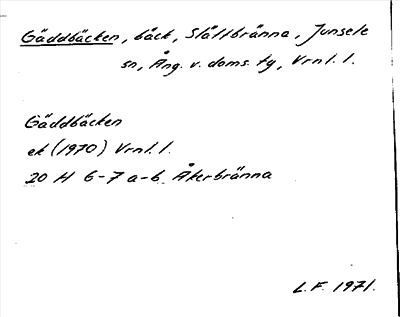 Gäddbäcken, bäck, Slåttbränna, Junsele
sn, Ång. v. doms. tg, Vrnl. l.
Gäddbäcken
ek (1970) Vrnl. l.
20 H 6-7 a-b Åkerbränna
L.F. 1971.